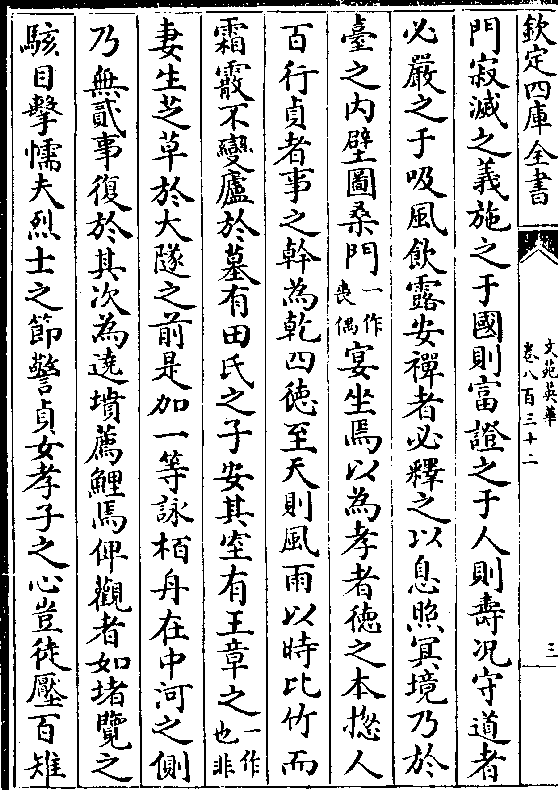 欽定四庫全書
文苑英華
卷八百三十二
三
門寂滅之義施之于國則富證之于人則壽况守道者
必嚴之于吸風飲露安禪者必釋之以息照冥境乃於
臺之内壁圖桑門一作喪偶宴坐焉以為孝者徳之本揔人
百行貞者事之幹為乾四徳至天則風雨以時比竹而
霜霰不變廬於墓有田氏之子安其室有王章之一作也非
妻生芝草於大隧之前是加一等詠栢舟在中河之側
乃無貳事復於其次為遶墳薦鯉焉俾觀者如堵覽之
駭目擊懦夫烈士之節警貞女孝子之心豈徒壓百雉